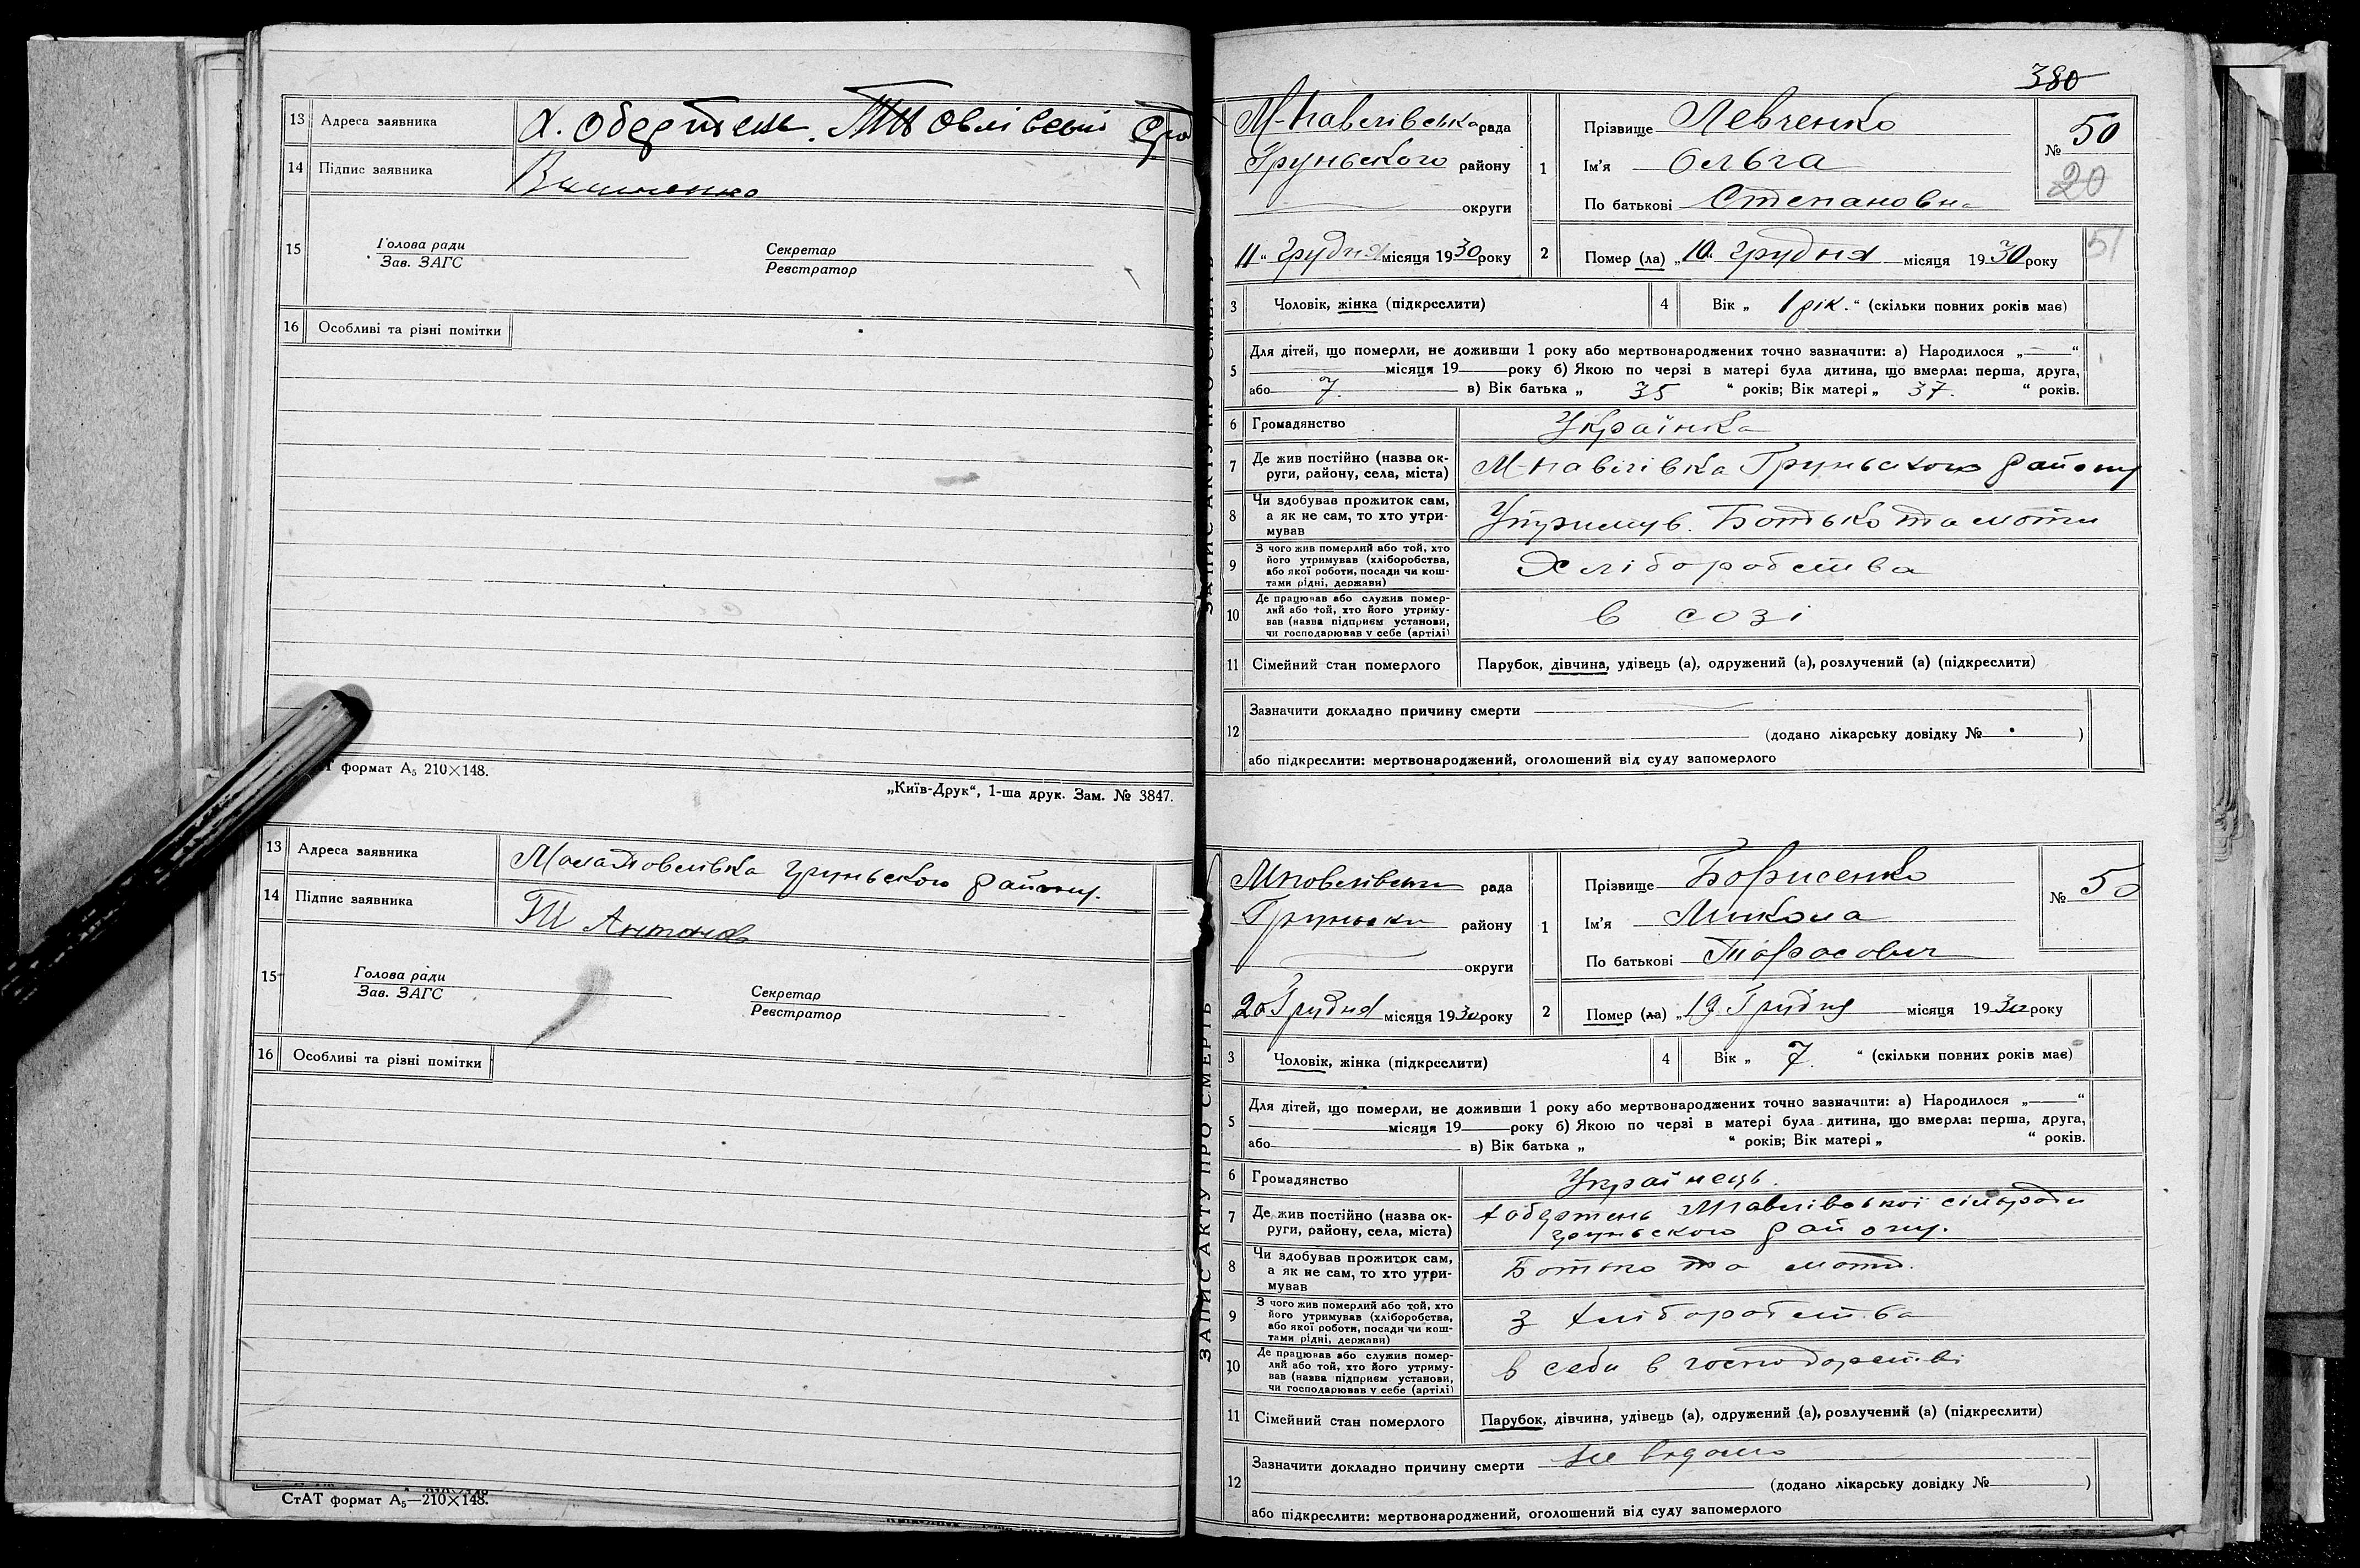 13 Адреса заявника х. Обертень.
14 Підпис заявника
15 Голова ради Секретар
Зав. ЗАГС Реєстратор
16 Особливі та різні помітки
формат А₅ 210×148.
„Київ-Друк“, 1-ша друк. Зам. № 3847.
13 Адреса заявника Малопавлівка Груньского району.
14 Підпис заявника
15 Голова ради Секретар
Зав. ЗАГС Реєстратор
16 Особливі та різні помітки
СтАТ формат А₅—210×148.
380
ЗАПИС АКТУ ПРО СМЕРТЬ
М-Павлівська рада
Груньского району
округи
11 “ Грудня місяця 1930 року
1 Прізвище Левченко
Ім'я Ольга
По батькові Степановна
№ 50
20
2 Помер (ла) „10. Грудня місяця 1930 року
51
3 Чоловік, жінка (підкреслити) 4 Вік „ 1 рік. “ (скільки повних років має)
5 Для дітей, що померли, не доживши 1 року або мертвонароджених точно зазначити: а) Народилося „ “
місяця 19 року б) Якою по черзі в матері була дитина, що вмерла: перша, друга,
або 7. в) Вік батька „ 35 “ років; Вік матері „ 37. “ років.
6 Громадянство Українка
7 Де жив постійно (назва округи, району, села, міста) М-павлівка Груньского району
8 Чи здобував прожиток сам,
а як не сам, то хто утримував Утримув. Батько та мати
9 З чого жив померлий або той, хто
його утримував (хліборобства,
або якої роботи, посади чи коштами рідні, держави) Хліборобства
10 Де працював або служив померлий або той, хто його утримував (назва підприєм установи,
чи господарював у себе (артілі) в созі
11 Сімейний стан померлого Парубок, дівчина, удівець (а), одружений (а), розлучений (а) (підкреслити)
12 Зазначити докладно причину смерти
(додано лікарську довідку № )
або підкреслити: мертвонароджений, оголошений від суду запомерлого
ЗАПИС АКТУ ПРО СМЕРТЬ
рада
району
округи
20 Грудня місяця 1930 року
1 Прізвище Борисенко
Ім'я Микола
По батькові Тарасович
№ 50
2 Помер (ла) „19 Грудня місяця 1930 року
3 Чоловік, жінка (підкреслити) 4 Вік „ 7. “ (скільки повних років має)
5 Для дітей, що померли, не доживши 1 року або мертвонароджених точно зазначити: а) Народилося „ “
місяця 19 року б) Якою по черзі в матері була дитина, що вмерла: перша, друга,
або в) Вік батька „ “ років; Вік матері „ “ років.
6 Громадянство Українець.
7 Де жив постійно (назва округи, району, села, міста) х обертень Мпавлівської сільради
груньского району.
8 Чи здобував прожиток сам,
а як не сам, то хто утримував Батько та мати.
9 З чого жив померлий або той, хто
його утримував (хліборобства,
або якої роботи, посади чи коштами рідні, держави) З хліборобства
10 Де працював або служив померлий або той, хто його утримував (назва підприєм установи,
чи господарював у себе (артілі) в себе в господарстві
11 Сімейний стан померлого Парубок, дівчина, удівець (а), одружений (а), розлучений (а) (підкреслити)
12 Зазначити докладно причину смерти не відомо
(додано лікарську довідку № )
або підкреслити: мертвонароджений, оголошений від суду запомерлого